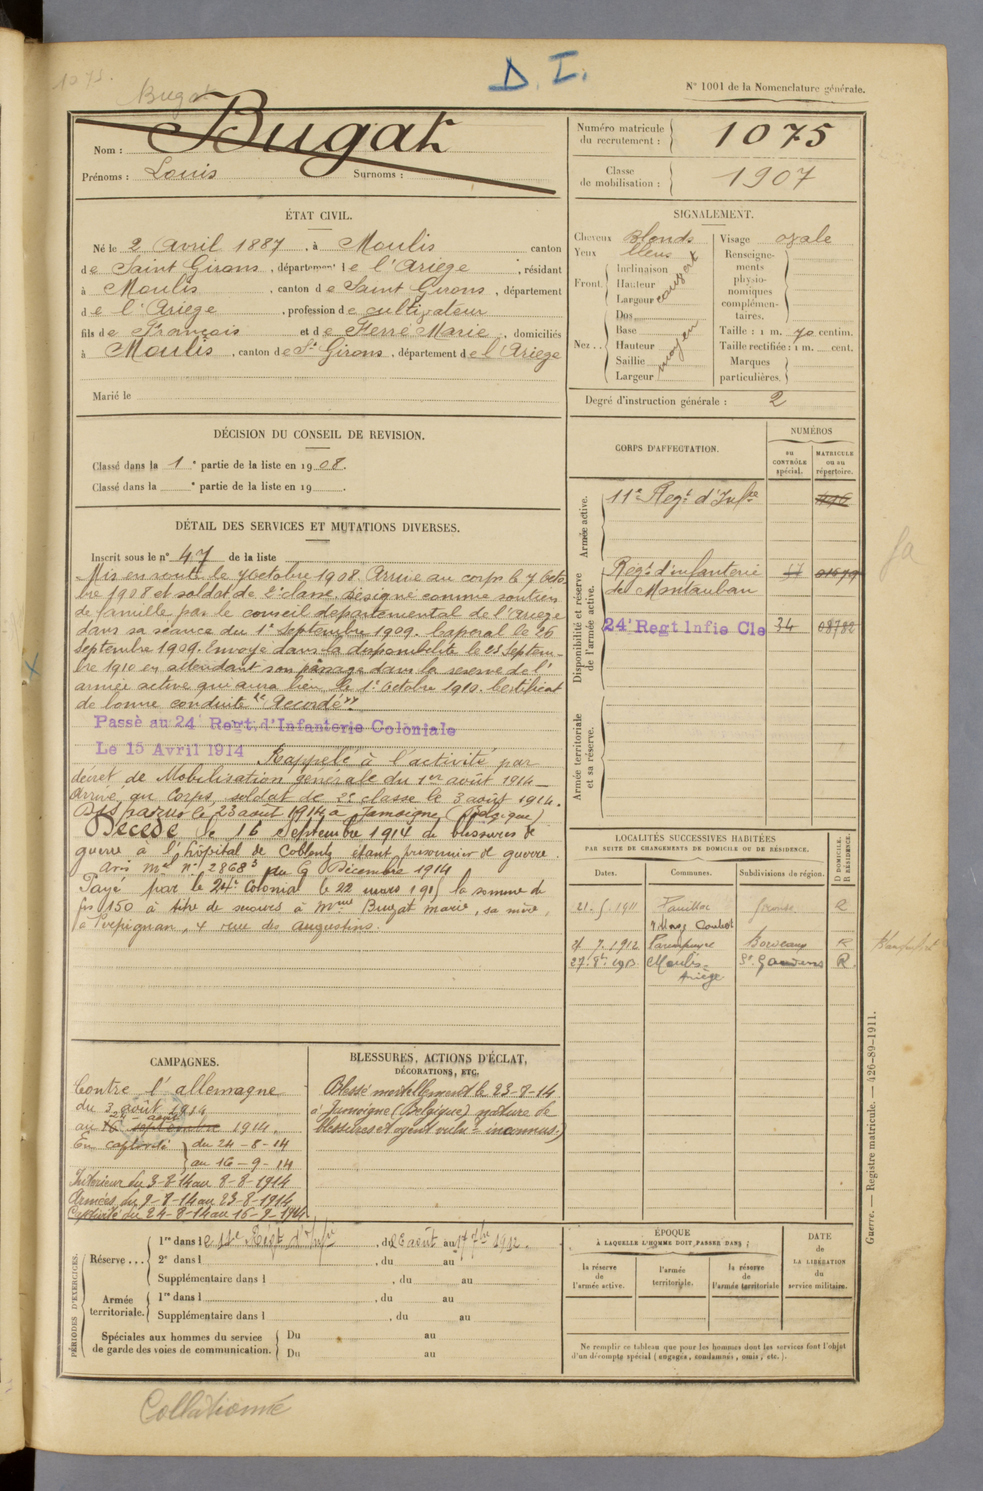 1075.
Bugat
D. I.
N° 1001 de la Nomenclature générale.
Nom : Bugat
Prénoms : Louis Surnoms :
Numéro matricule du recrutement : 1075
Classe de mobilisation : 1907
ÉTAT CIVIL.
Né le 2 Avril 1887, à Moulis canton
de Saint Girons, département de l'Ariège, résidant
à Moulis, canton de Saint Girons, département
de l'Ariège, profession de cultivateur
fils de François et de Ferré Marie, domiciliés
à Moulis, canton de St Girons, département de l'Ariège
Marié le
SIGNALEMENT.
Cheveux blonds
Yeux bleus
Front. Inclinaison
Hauteur
Largeur
Nez .. Dos
Base
Hauteur
Saillie
Largeur
moyen
Visage ovale
Renseignements physionomiques complémentaires.
Taille : 1 m. 70 centim.
Taille rectifiée : 1 m. cent.
Marques particulières.
Degré d'instruction générale : 2
DÉCISION DU CONSEIL DE REVISION.
Classé dans la 1e partie de la liste en 1908.
Classé dans la e partie de la liste en 19 .
DÉTAIL DES SERVICES ET MUTATIONS DIVERSES.
Inscrit sous le n° 47 de la liste
Mis en route le 7 Octobre 1908. Arrivé au corps le 7 Octo-
bre 1908 et soldat de 2e classe. Désigné comme soutien
de famille par le conseil départemental de l'Ariège
dans sa séance du 1er Septembre 1909. Caporal le 26
Septembre 1909. Envoyé dans la disponibilité le 25 Septem-
bre 1910 en attendant son passage dans la réserve de l'
armée active qui aura lieu le 1er Octobre 1910. Certificat
de bonne conduite "Accordé"
Passé au 24e Regt. d'Infanterie Coloniale
Le 15 Avril 1914 Rappelé à l'activité par
décret de Mobilisation générale du 1er août 1914
Arrivé au Corps, soldat de 2e classe le 3 août 1914.
Disparu le 23 août 1914 à Jamoigne (Belgique)
Décédé le 16 Septembre 1914 de blessures de
guerre à l'hôpital de Coblentz étant prisonnier de guerre.
Avis mel n° 2868 du 9 Décembre 1914
Payé par le 24e Colonial le 22 mars 1915 la somme de
frs 150 à titre de secours à Mme Bugat Marie, sa mère,
à Perpignan, 4 rue des Augustins.
CORPS D'AFFECTATION.
NUMÉROS
au CONTRÔLE spécial.
MATRICULE ou au répertoire.
Armée active.
11e Regt d'Infie
Disponibilité et réserve de l'armée active.
Regt d'infanterie
de Montauban
24e Regt Infie Cle 34 08782
Armée territoriale et sa réserve.
LOCALITÉS SUCCESSIVES HABITÉES
PAR SUITE DE CHANGEMENTS DE DOMICILE OU DE RÉSIDENCE.
Dates. Communes. Subdivisions du région. D DOMICILE. R RÉSIDENCE.
1911 Pauillac Gironde R
7. 1912 Parempuyre Bordeaux R
Moulis St Gaudens R
Ariège
CAMPAGNES.
Contre l'allemagne
du 3 août 1914
au 16 septembre 1914.
En captivité du 24-8-14
au 16-9-14
Intérieur du 3-8-14 au 8-8-1914
Armées du 9-8-14 au 23-8-1914
Captivité du 24-8-14 au 16-9-1914
BLESSURES, ACTIONS D'ÉCLAT, DÉCORATIONS, ETC.
Blessé mortellement le 23-8-14
à Jamoigne (Belgique) nature de
blessures et agent vulnt inconnus.
PÉRIODES D'EXERCICES.
Réserve ... 1re dans le 11e Regt d'Infie, du 26 août au 17 7bre 1912.
2e dans l , du au
Supplémentaire dans l , du au
Armée territoriale. 1re dans l , du au
Supplémentaire dans l , du au
Spéciales aux hommes du service de garde des voies de communication. Du au
Du au
ÉPOQUE
À LAQUELLE L'HOMME DOIT PASSER DANS :
la réserve de l'armée active.
l'armée territoriale.
la réserve de l'armée territoriale
DATE de LA LIBÉRATION du service militaire.
Ne remplir ce tableau que pour les hommes dont les services font l'objet
d'un décompte spécial (engagés, condamnés, omis, etc.).
Guerre. — Registre matricule. — 426-89-1911.
Collationné